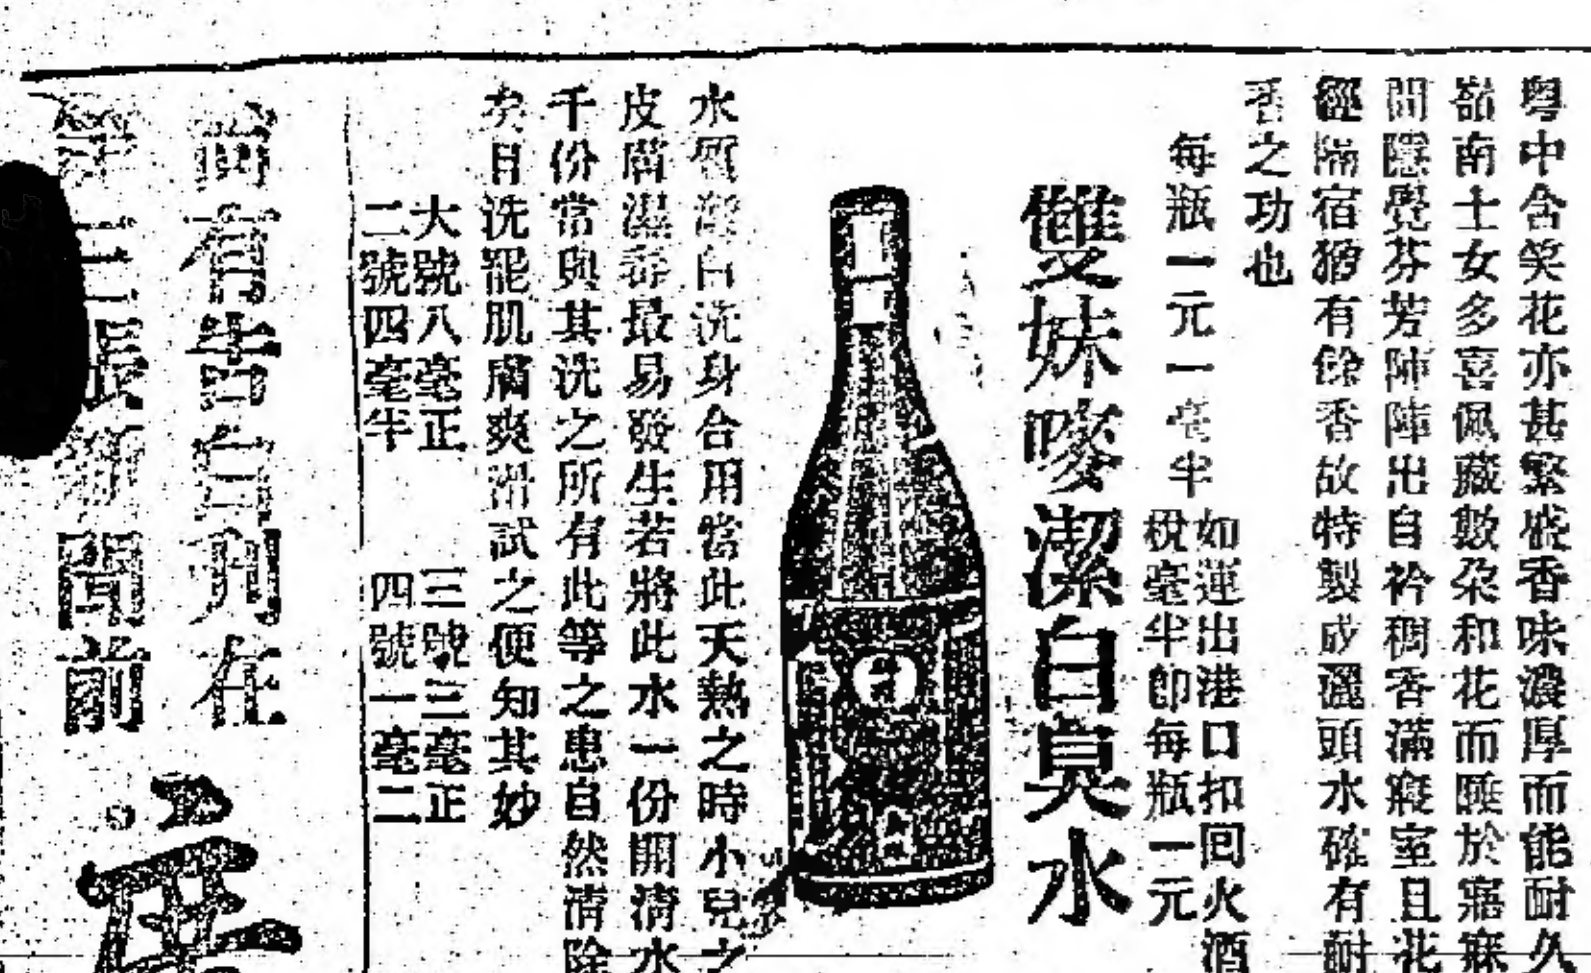 粵中含笑花亦甚繁盛香味濃厚而能耐久
嶺南士女多喜佩藏數朵和花而睡於寤寐
間隱覺芬芳陣陣出自衿裯香滿寢室且花
經隔宿猶有餘香故特製成灑頭水確有耐
香之功也
每瓶一元一毫半
如運出港口扣回火酒
稅毫半即每瓶一元
雙妹嘜潔白臭水
水質潔白洗身合用當此天熱之時小兒之
皮膚濕毒最易發生若將此水一份開清水
千份常與其洗之所有此等之患自然清除
矣自洗罷肌膚爽滑試之便知其妙
大號八毫正 三號三毫正
二號四毫半 四號一毫二
尚有告白刊在
第三張新聞前